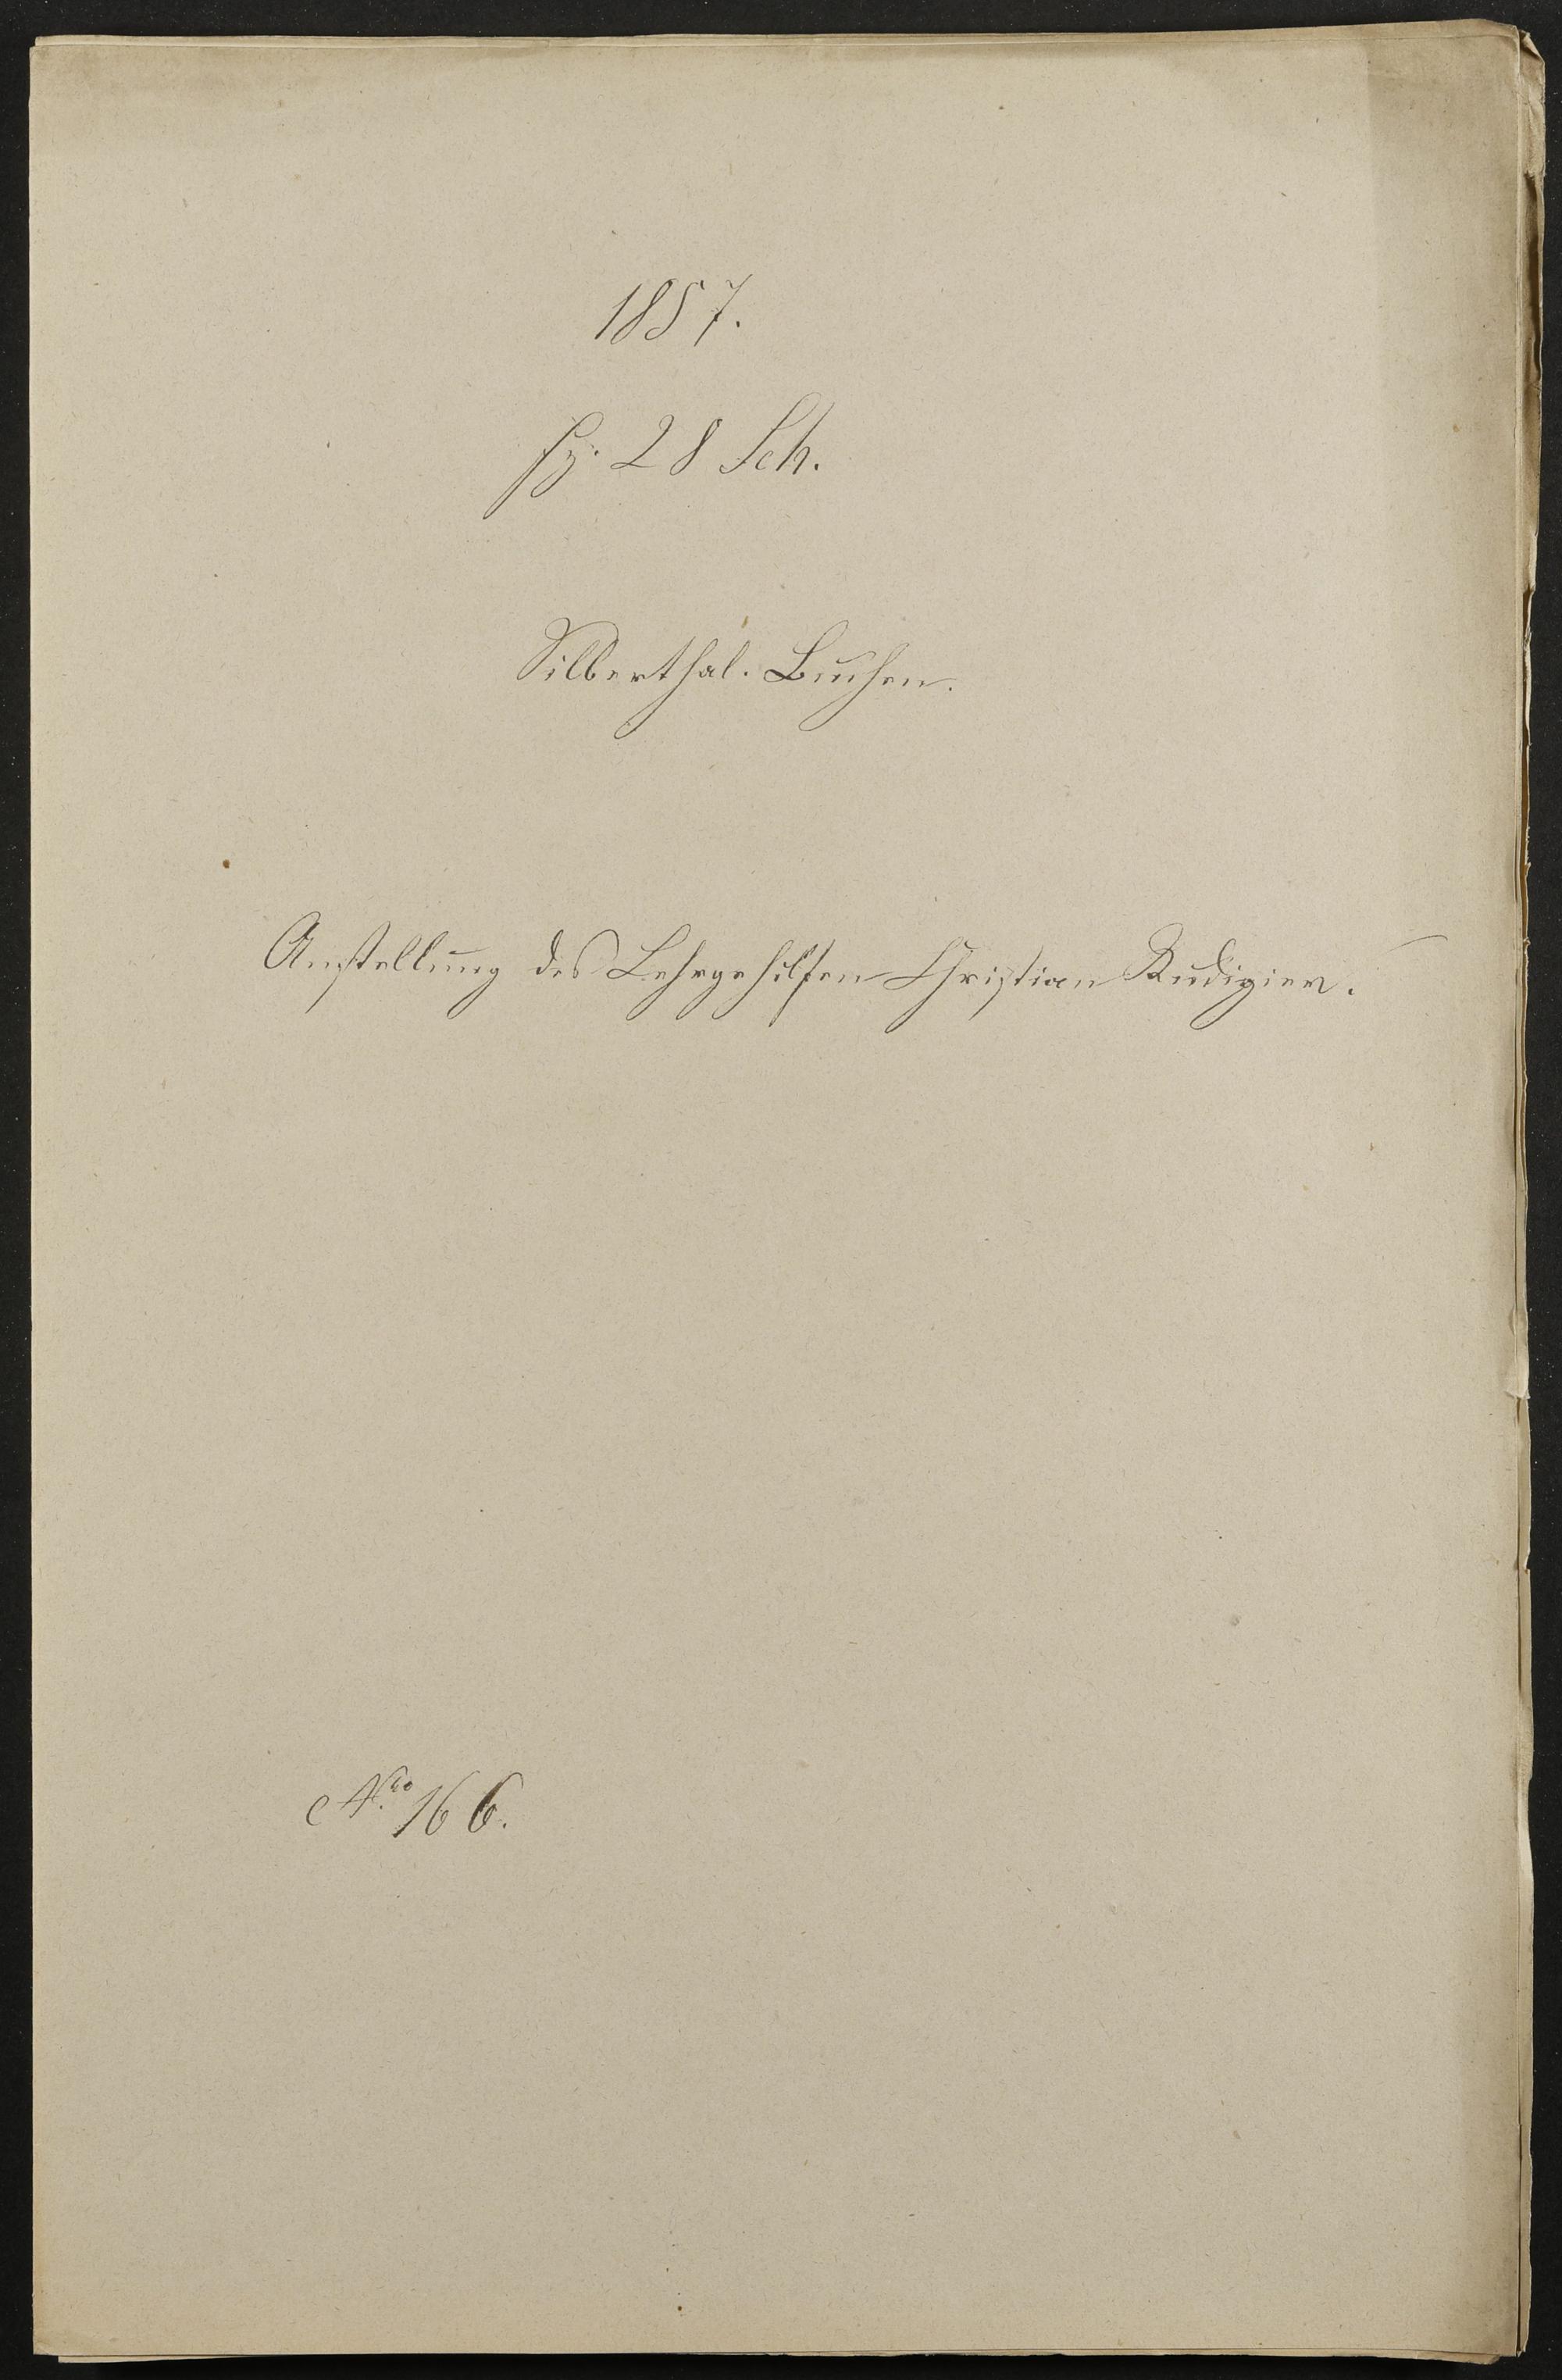 1857.
fz. 28 Sch.
Silberthal. Buchen.
Anstellung des Lehrgehilfen Christian Rudigier.
Nro 166.